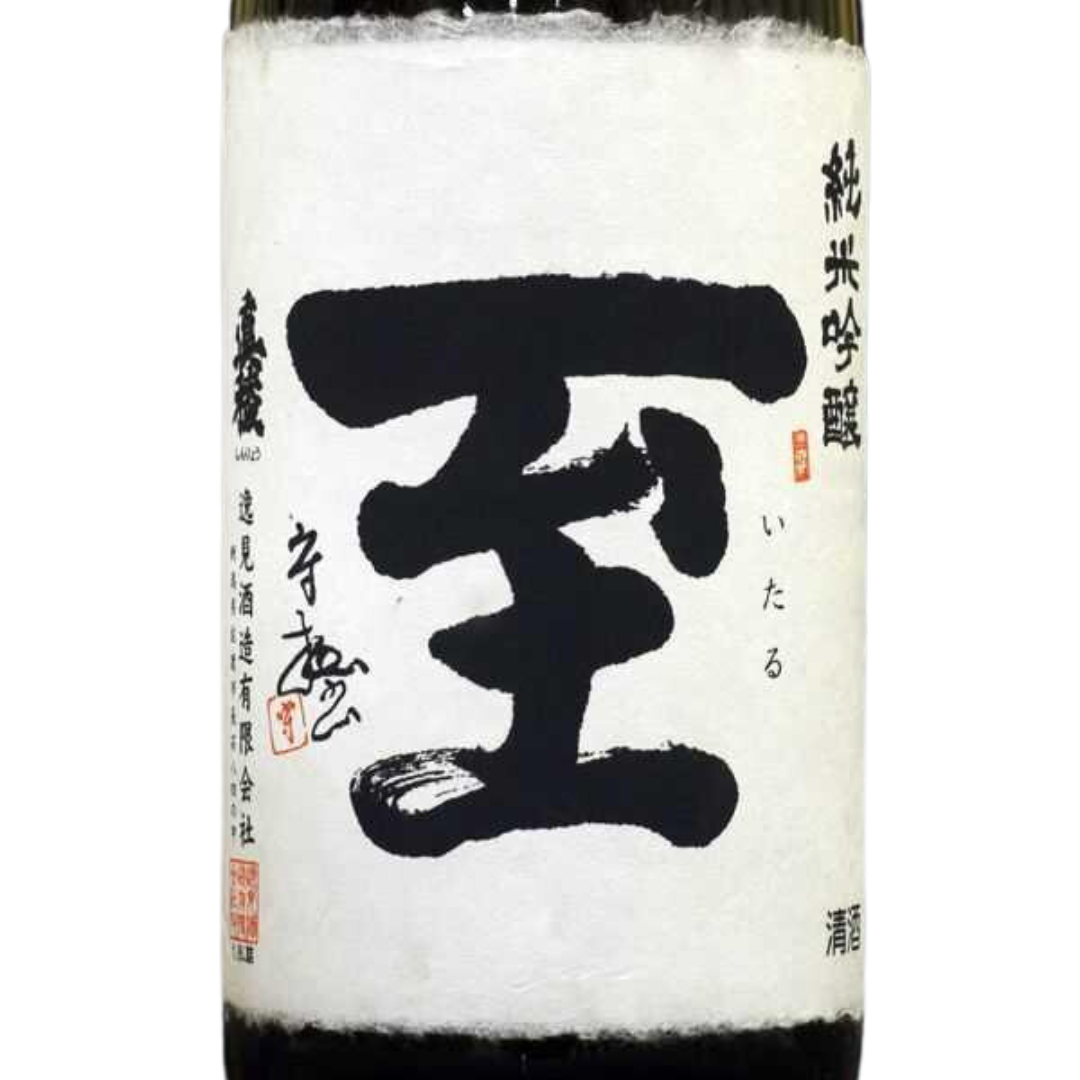 純米吟醸
いたる
至
清酒
真稜
しんりょう
逸見酒造有限会社